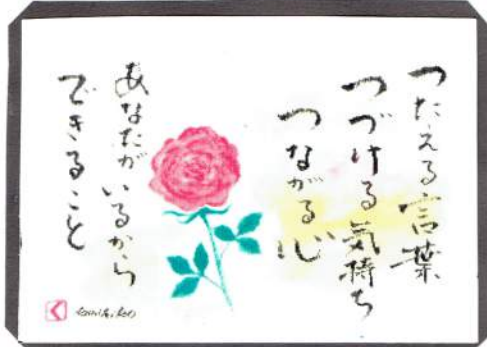 つたえる言葉
つづける気持ち
つながる心
あなたがいるから
できること
く